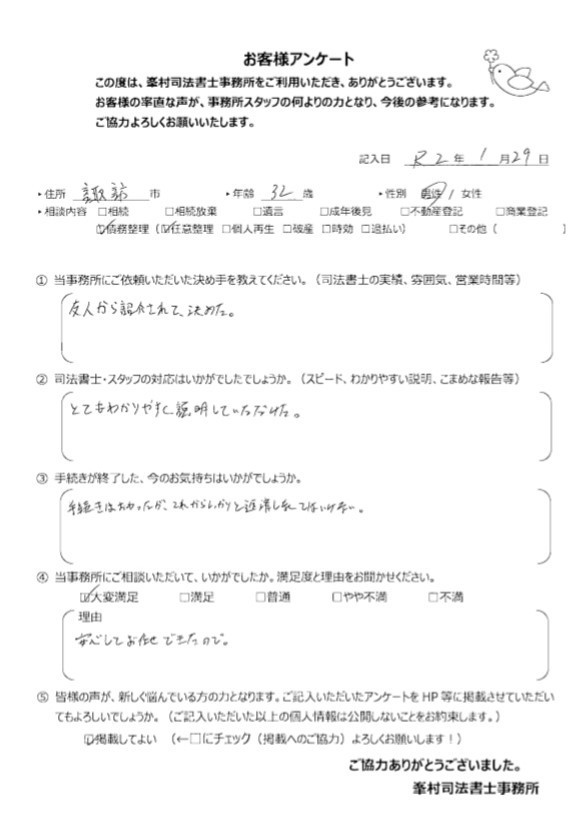 お客様アンケート
この度は、峯村司法書士事務所をご利用いただき、ありがとうございます。
お客様の率直な声が、事務所スタッフの何よりの力となり、今後の参考になります。
ご協力よろしくお願いいたします。
記入日 R2年 1月29日
・住所 諏訪 市 ・年齢 32 歳 ・性別 男性 / 女性
・相談内容 □相続 □相続放棄 □遺言 □成年後見 □不動産登記 □商業登記
☑債務整理(☑任意整理 □個人再生 □破産 □時効 □過払い) □その他( )
① 当事務所にご依頼いただいた決め手を教えてください。(司法書士の実績、雰囲気、営業時間等)
友人から紹介されて、決めた。
② 司法書士・スタッフの対応はいかがでしたでしょうか。(スピード、わかりやすい説明、こまめな報告等)
とてもわかりやすく説明していただけた。
③ 手続きが終了した、今のお気持ちはいかがでしょうか。
手続きは終わったが、これからしっかりと返済しなくてはいけない。
④ 当事務所にご相談いただいて、いかがでしたか。満足度と理由をお聞かせください。
☑大変満足 □満足 □普通 □やや不満 □不満
理由
安心してお任せできたので。
⑤ 皆様の声が、新しく悩んでいる方の力となります。ご記入いただいたアンケートをHP等に掲載させていただい
てもよろしいでしょうか。(ご記入いただいた以上の個人情報は公開しないことをお約束します。)
☑掲載してよい (←□にチェック(掲載へのご協力)よろしくお願いします!)
ご協力ありがとうございました。
峯村司法書士事務所